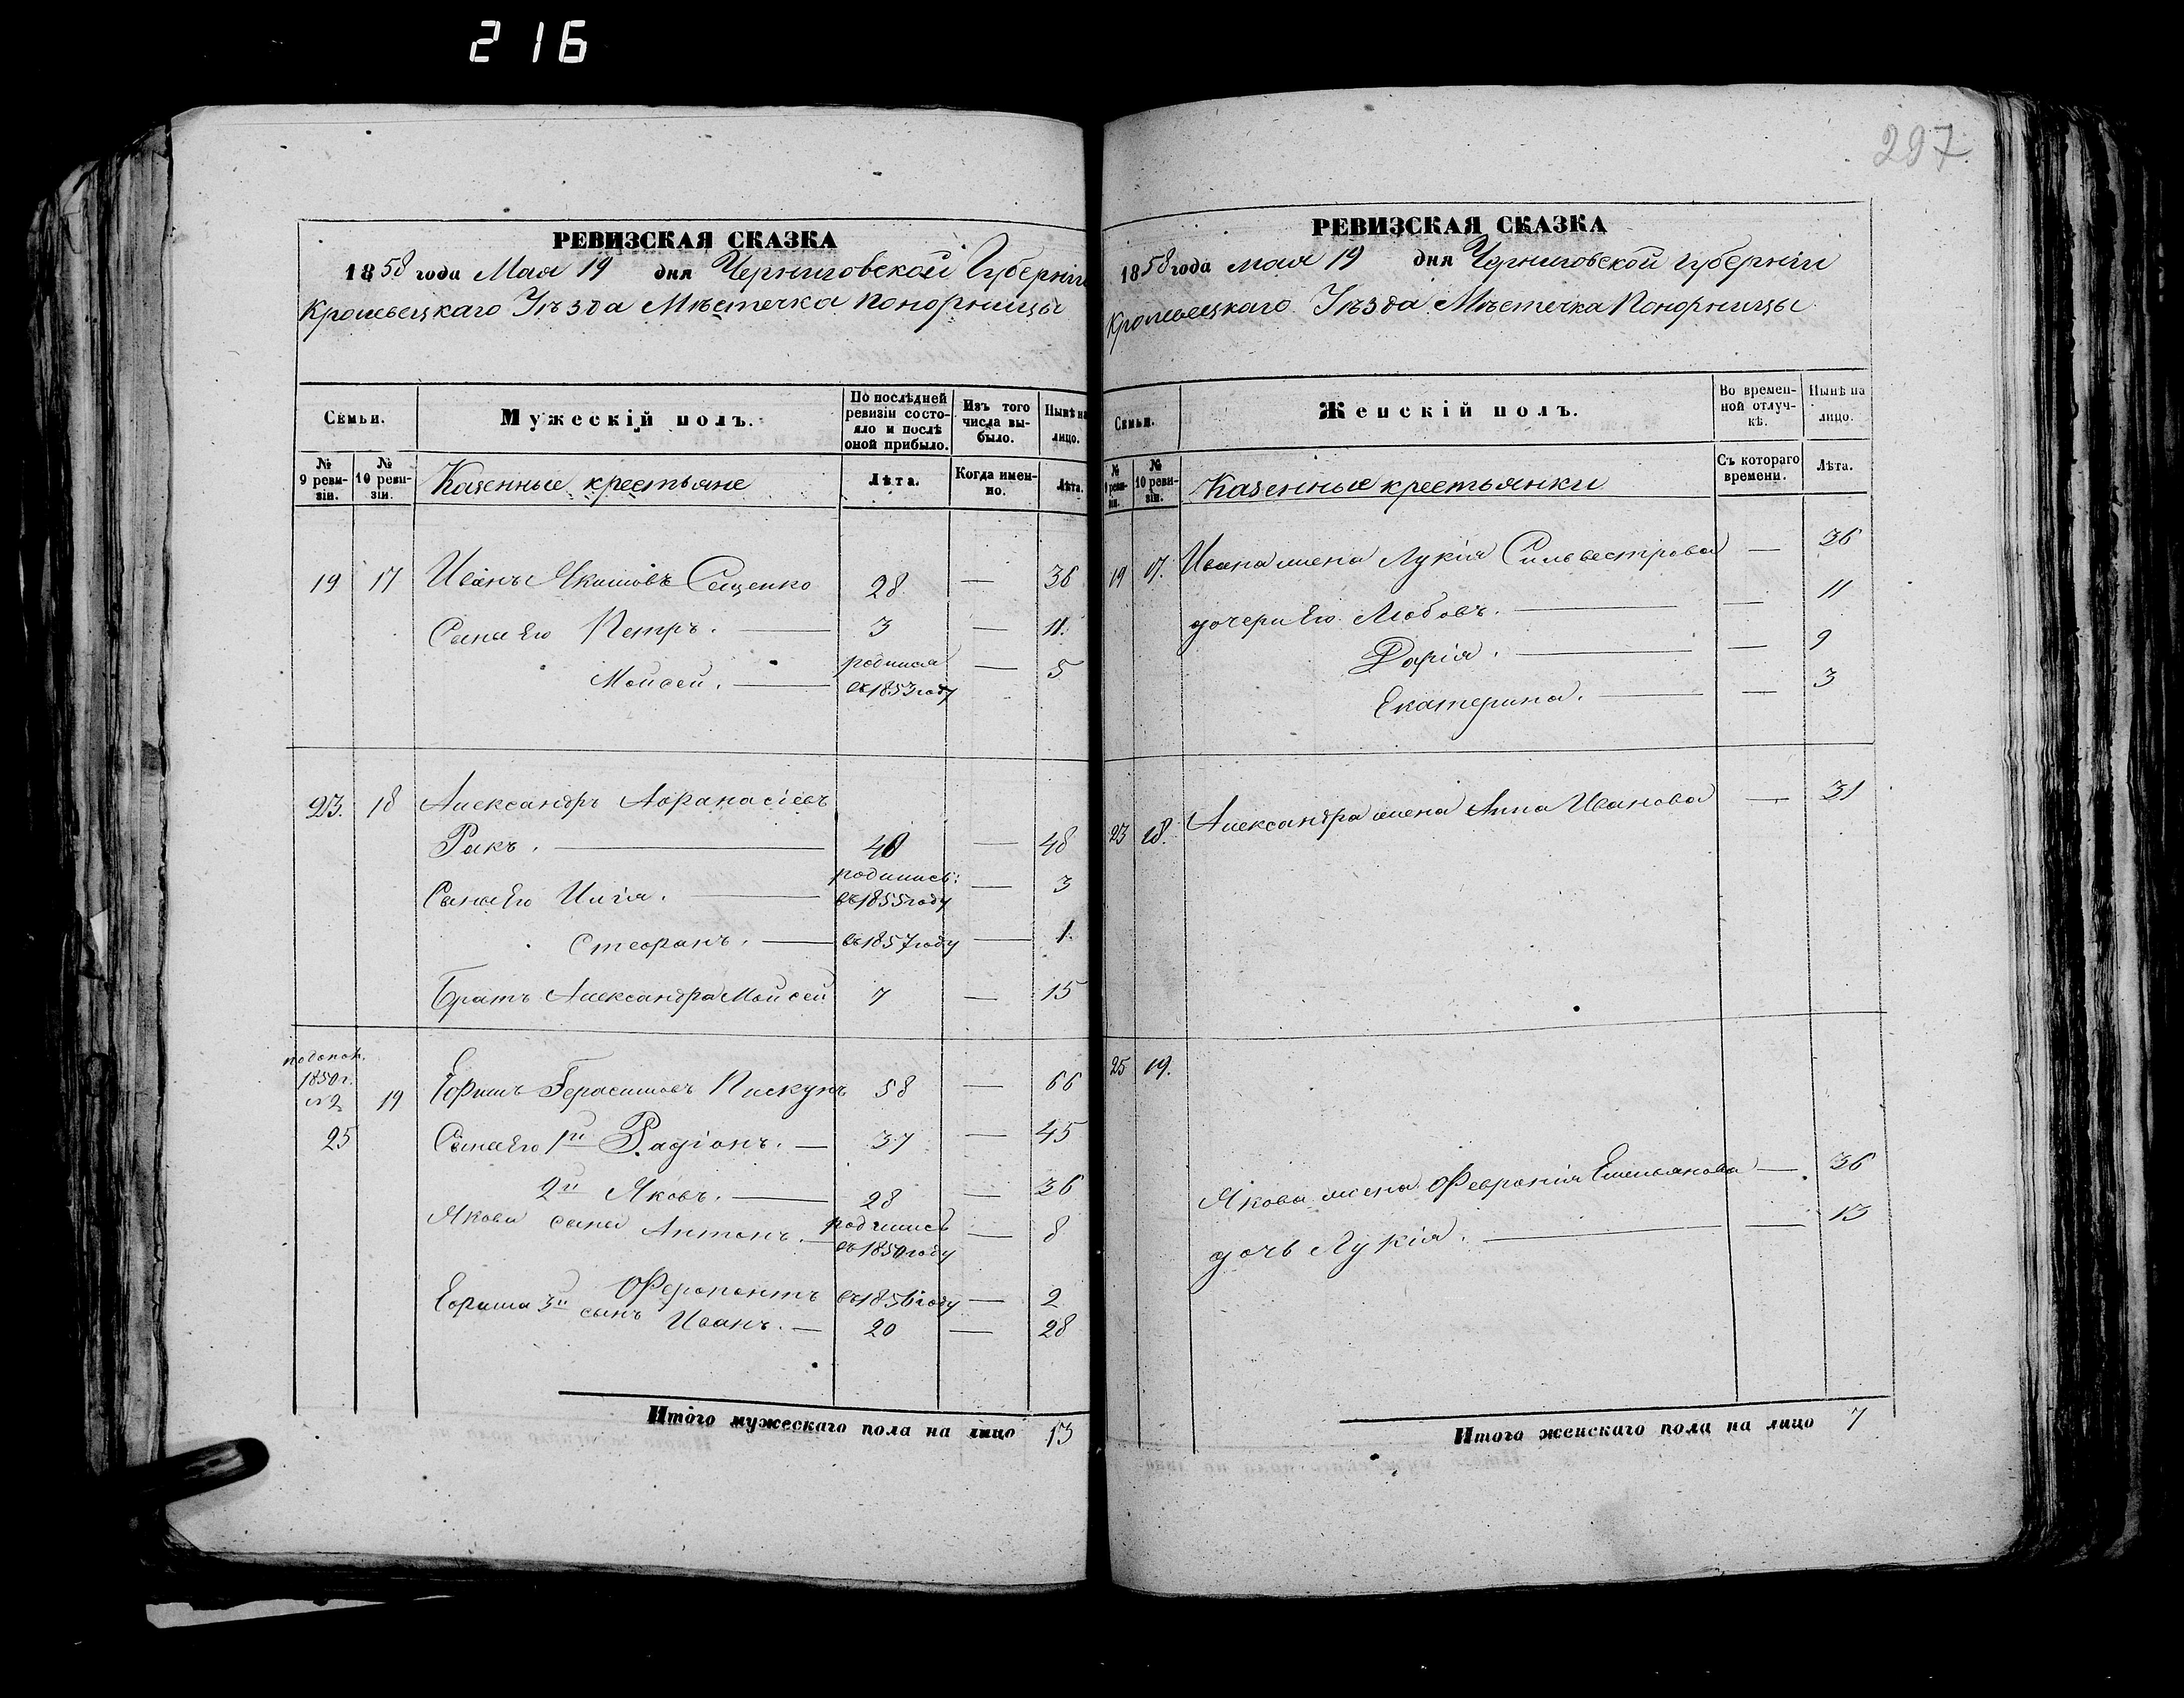 216
297
РЕВИЗСКАЯ СКАЗКА
1858 года Мая 19 дня Черниговской Губерніи
Кролевецкаго Уѣзда Мѣстечка Понорницы
Семьи. Мужескій полъ. По послѣдней ревизіи состояло и послѣ оной прибыло. Изъ того числа выбыло. Нынѣ на лицо.
№ 9 ревизіи. № 10 ревизіи. Казенные крестьяне Лѣта. Когда именно. Лѣта.
19 17 Иванъ Якимовъ Сащенко 28 — 36
Сыны Его Петръ. — 3 — 11.
Мойсей. — родился въ 1853 году — 5
23. 18 Александръ Афанасіевъ
Ракъ. — 40 — 48
Сыны Его Илія. — родились: въ 1855 году — 3
Стефанъ. — въ 1857 году — 1.
Братъ Александра Мойсей 7 — 15
1850 г.
№ 2 19 Ефимъ Герасимовъ Пискунъ 58 — 66
25 Сыны Его 1й Радіонъ. — 37 — 45
2й Яковъ. — 28 — 36
Якова сыны Антонъ. — родились въ 1850 году — 8
Ферапонтъ въ 1856 году — 2
Ефима 3й сынъ Иванъ. — 20 — 28
Итого мужескаго пола на лицо 13
РЕВИЗСКАЯ СКАЗКА
1858 года мая 19 дня Черниговской Губерніи
Кролевецкаго Уѣзда Мѣстечка Понорницы
Семьи. Женскій полъ. Во временной отлучкѣ. Нынѣ на лицо.
№ 9 ревизіи. № 10 ревизіи. Казенные крестьянки Съ котораго времени. Лѣта.
19 17. Ивана жена Лукія Сильвестрова — 36
дочери Его Любовь. — — 11
Дарія. — — 9
Екатерина. — — 3
23 18. Александра жена Анна Иванова — 31
25 19.
Якова жена Февронія Емельянова — 36
дочь Лукія. — — 13
Итого женскаго пола на лицо 7